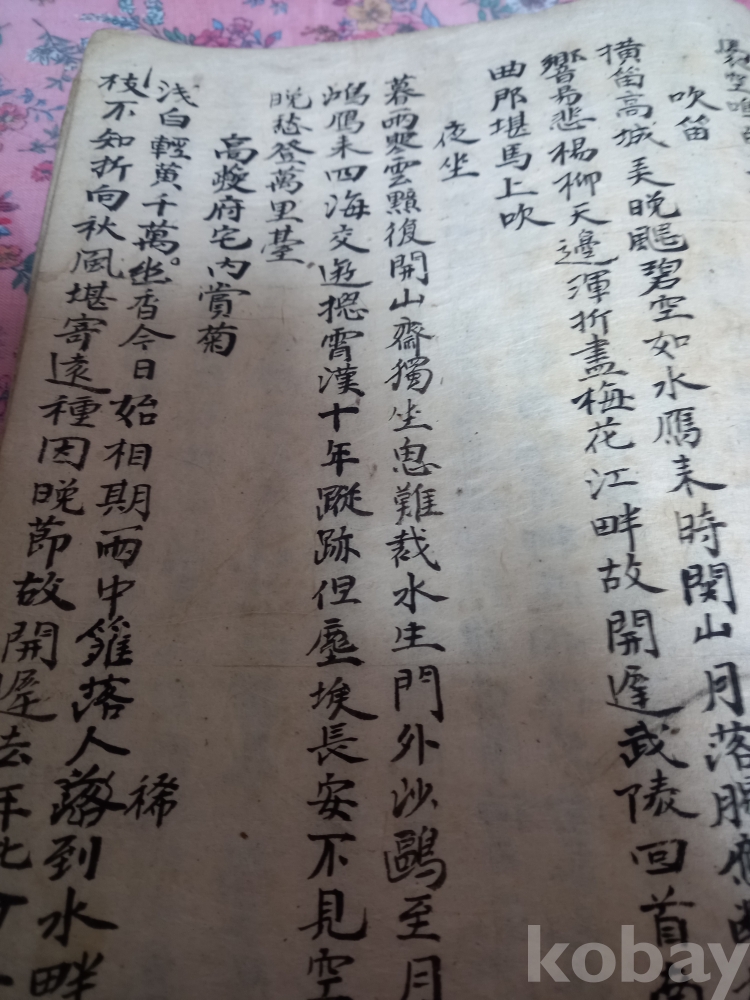 吹笛
橫笛高城美晚颸碧空如水鴈來時関山月落
響易悲楊柳天邊渾折盡梅花江畔故開遲武陵回首
曲那堪馬上吹
夜坐
暮雨變雲黯復開山齋獨坐思難裁水生門外沙鷗至月
鴈來四海交遊揔霄漢十年蹤跡但塵埃長安不見空
晩愁登萬里臺
高府宅內賞菊
浅白輕黃千萬坐香今日始相期雨中籬落人稀到水畔
枝不知折向秋風堪寄遠種因晚節故開遲去年
kobay